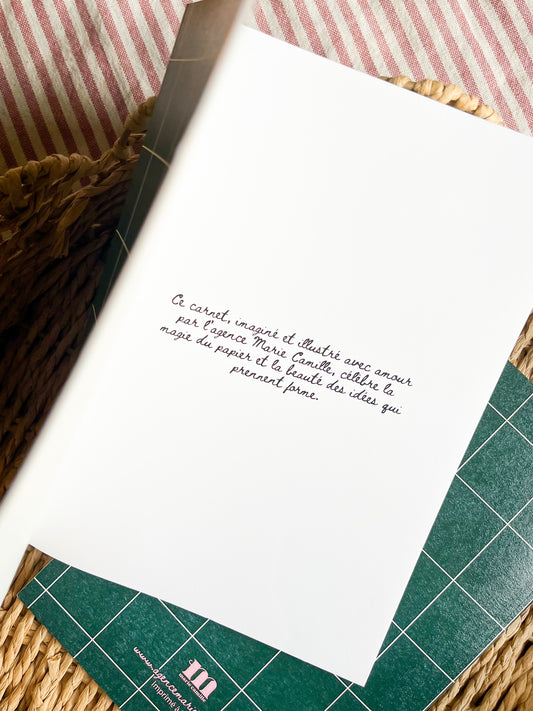 Ce carnet, imaginé et illustré avec amour
par l'agence Marie Camille, célèbre la
magie du papier et la beauté des idées qui
prennent forme.
m
marie camille
www.agencemari
Imprimé à